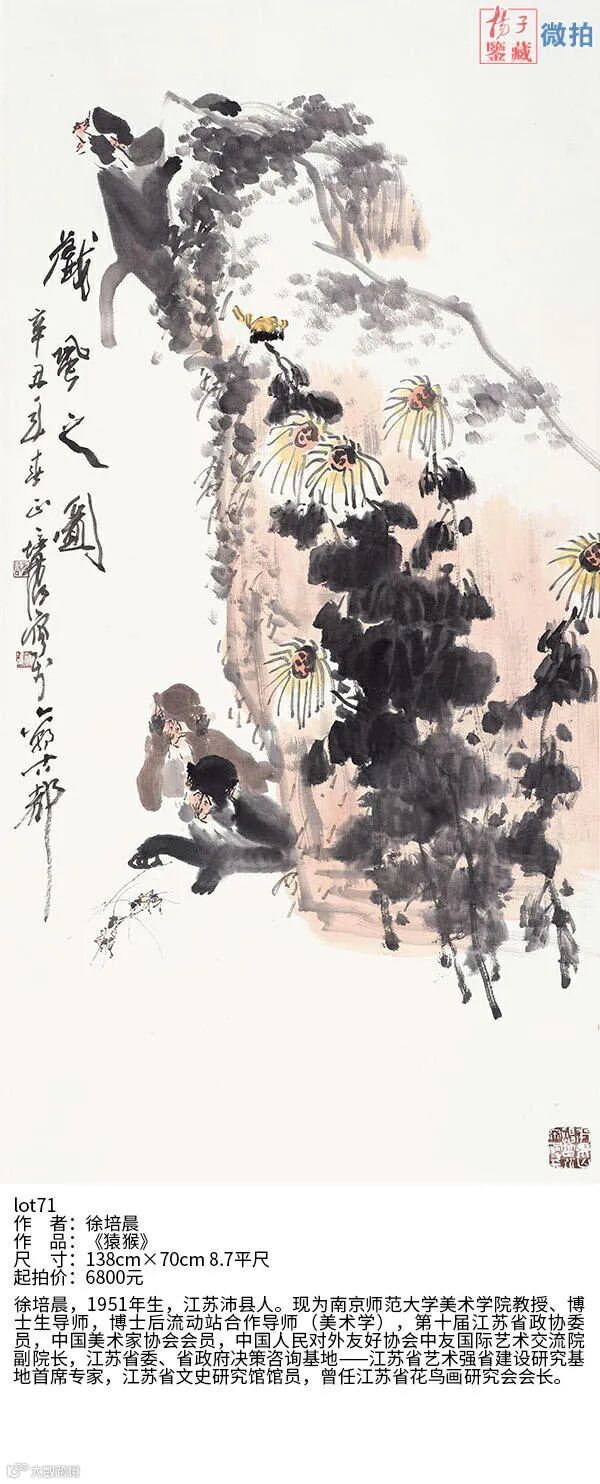 揚子
鑒藏
微拍
戲蟹之圖
辛丑年春正培晨寫於六朝古都
lot71
作　者：徐培晨
作　品：《猿猴》
尺　寸：138cm×70cm 8.7平尺
起拍价：6800元
徐培晨，1951年生，江苏沛县人。现为南京师范大学美术学院教授、博
士生导师，博士后流动站合作导师（美术学），第十届江苏省政协委
员，中国美术家协会会员，中国人民对外友好协会中友国际艺术交流院
副院长，江苏省委、省政府决策咨询基地——江苏省艺术强省建设研究基
地首席专家，江苏省文史研究馆馆员，曾任江苏省花鸟画研究会会长。
大数跨境